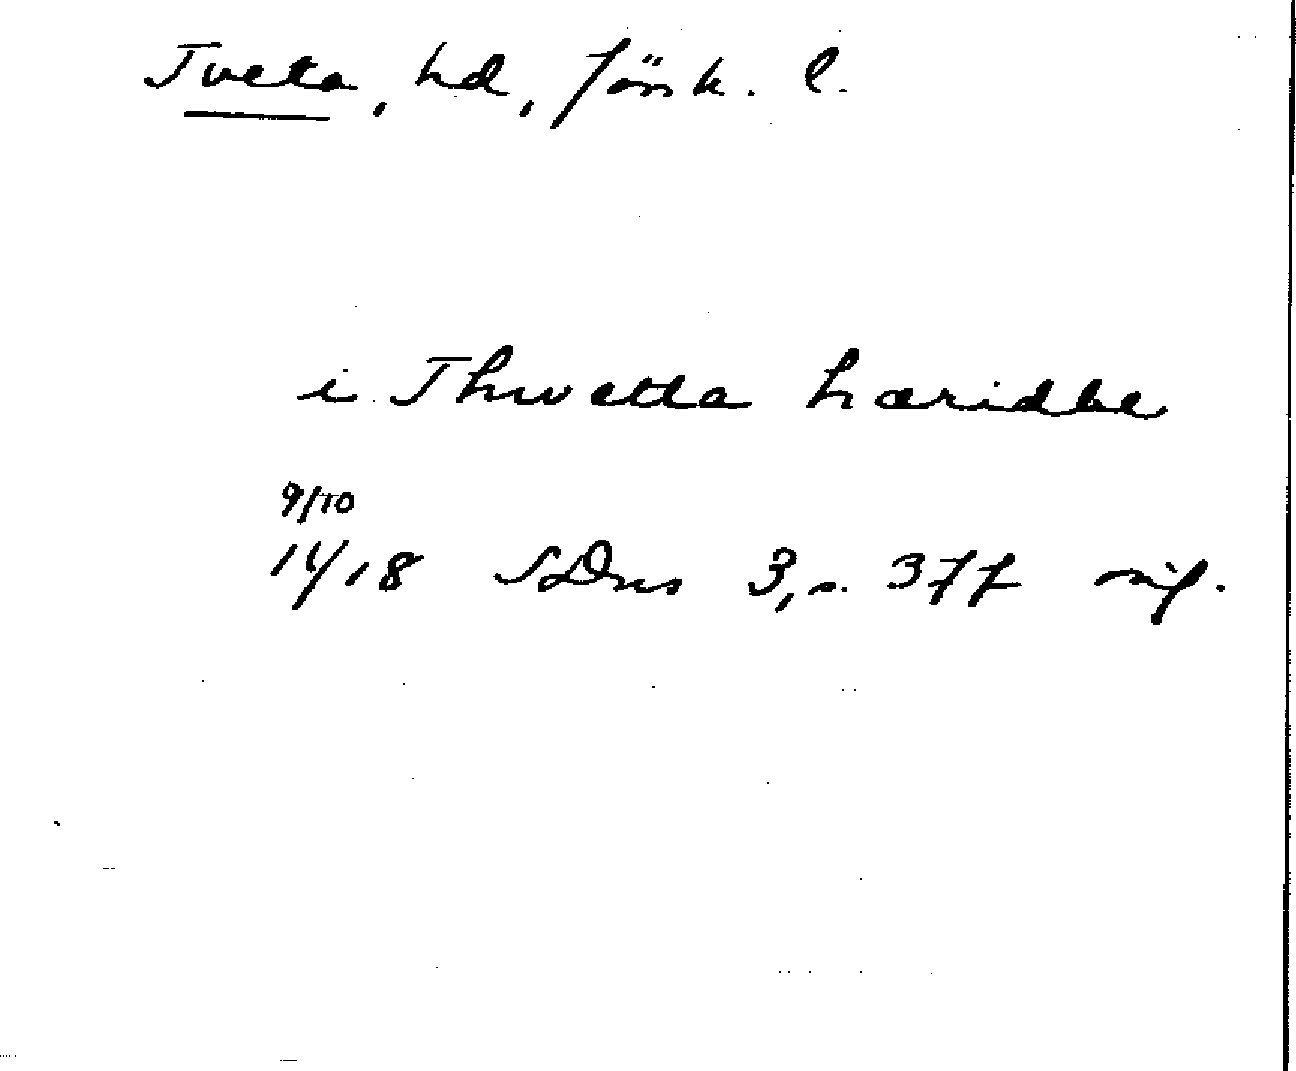 Tveta, hd, Jönk. l.
i Thwetta hæridhe
9/10
1418 SDns 3, s. 377